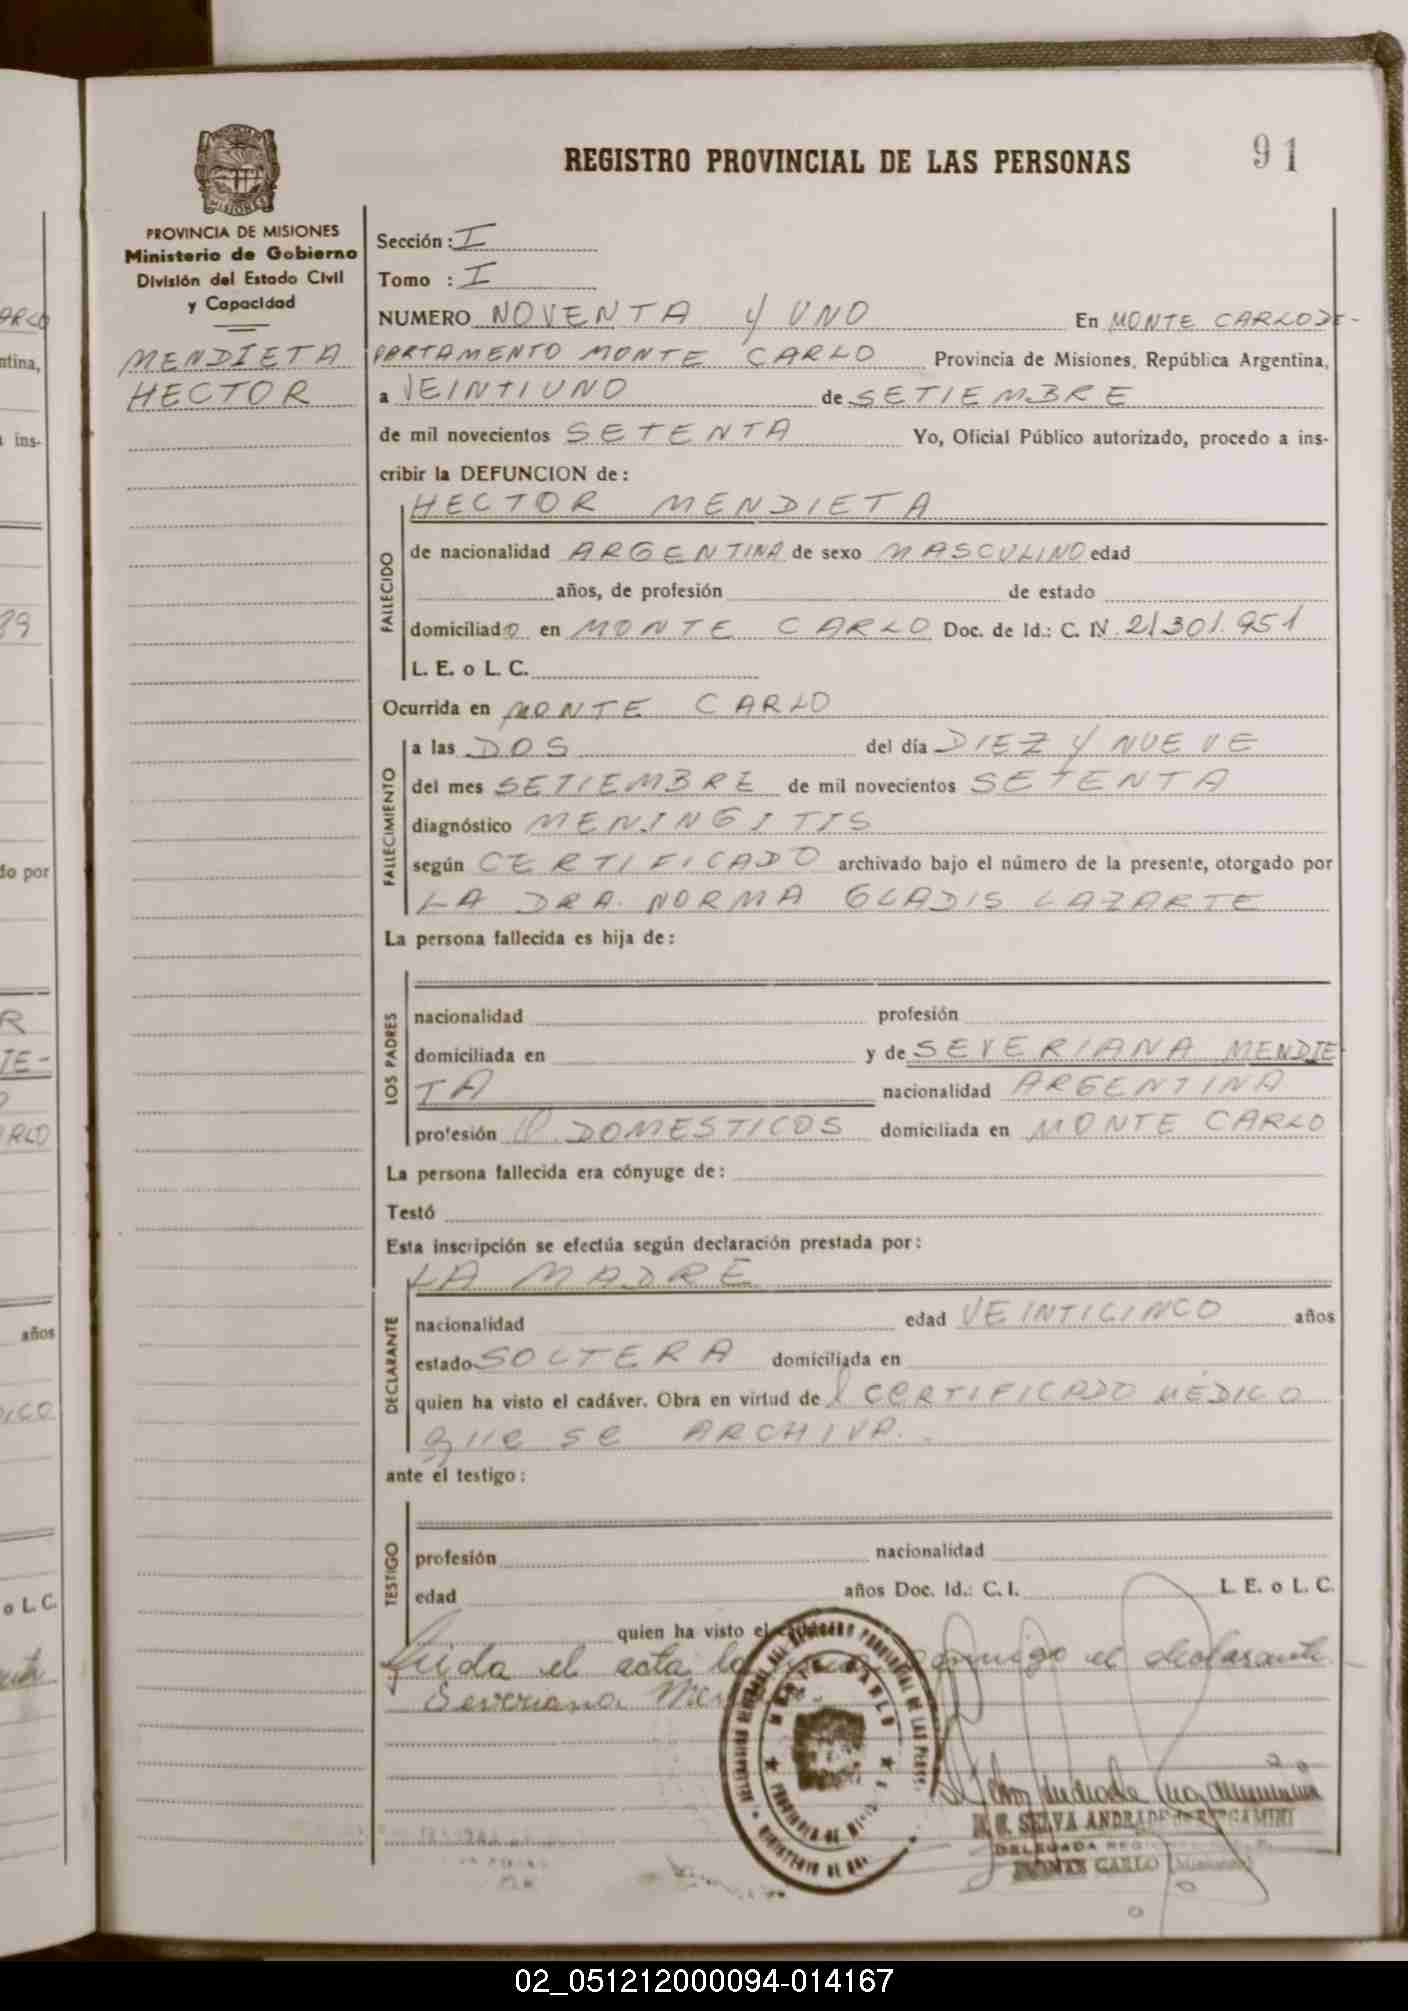 REGISTRO PROVINCIAL DE LAS PERSONAS
91
PROVINCIA DE MISIONES
Ministerio de Gobierno
División del Estado Civil
y Capacidad
MENDIETA
HECTOR
Sección : I
Tomo : I
NUMERO NOVENTA Y UNO En MONTE CARLO DE-
PARTAMENTO MONTE CARLO Provincia de Misiones, República Argentina,
a VEINTIUNO de SETIEMBRE
de mil novecientos SETENTA Yo, Oficial Público autorizado, procedo a ins-
cribir la DEFUNCION de :
HECTOR MENDIETA
FALLECIDO
de nacionalidad ARGENTINA de sexo MASCULINO edad
años, de profesión de estado
domiciliado en MONTE CARLO Doc. de Id.: C. N. 21301.951
L. E. o L. C.
Ocurrida en MONTE CARLO
FALLECIMIENTO
a las DOS del día DIEZ Y NUEVE
del mes SETIEMBRE de mil novecientos SETENTA
diagnóstico MENINGITIS
según CERTIFICADO archivado bajo el número de la presente, otorgado por
LA DRA. NORMA GLADIS LAZARTE
La persona fallecida es hija de :
LOS PADRES
nacionalidad profesión
domiciliada en y de SEVERIANA MENDIE-
TA nacionalidad ARGENTINA
profesión Q. DOMESTICOS domiciliada en MONTE CARLO
La persona fallecida era cónyuge de :
Testó
Esta inscripción se efectúa según declaración prestada por :
LA MADRE
DECLARANTE
nacionalidad edad VEINTICINCO años
estado SOLTERA domiciliada en
quien ha visto el cadáver. Obra en virtud del CERTIFICADO MÉDICO
que se ARCHIVA.
ante el testigo :
TESTIGO
profesión nacionalidad
edad años Doc. Id.: C. I. L. E. o L. C.
quien ha visto el
Leída el acta la conmigo el declarante
Severiana
MONTE CARLO
PROVINCIA DE MISIONES
SELVA ANDRADE de BERGAMINI
DELEGADA
MONTE CARLO (Misiones)
02_051212000094-014167